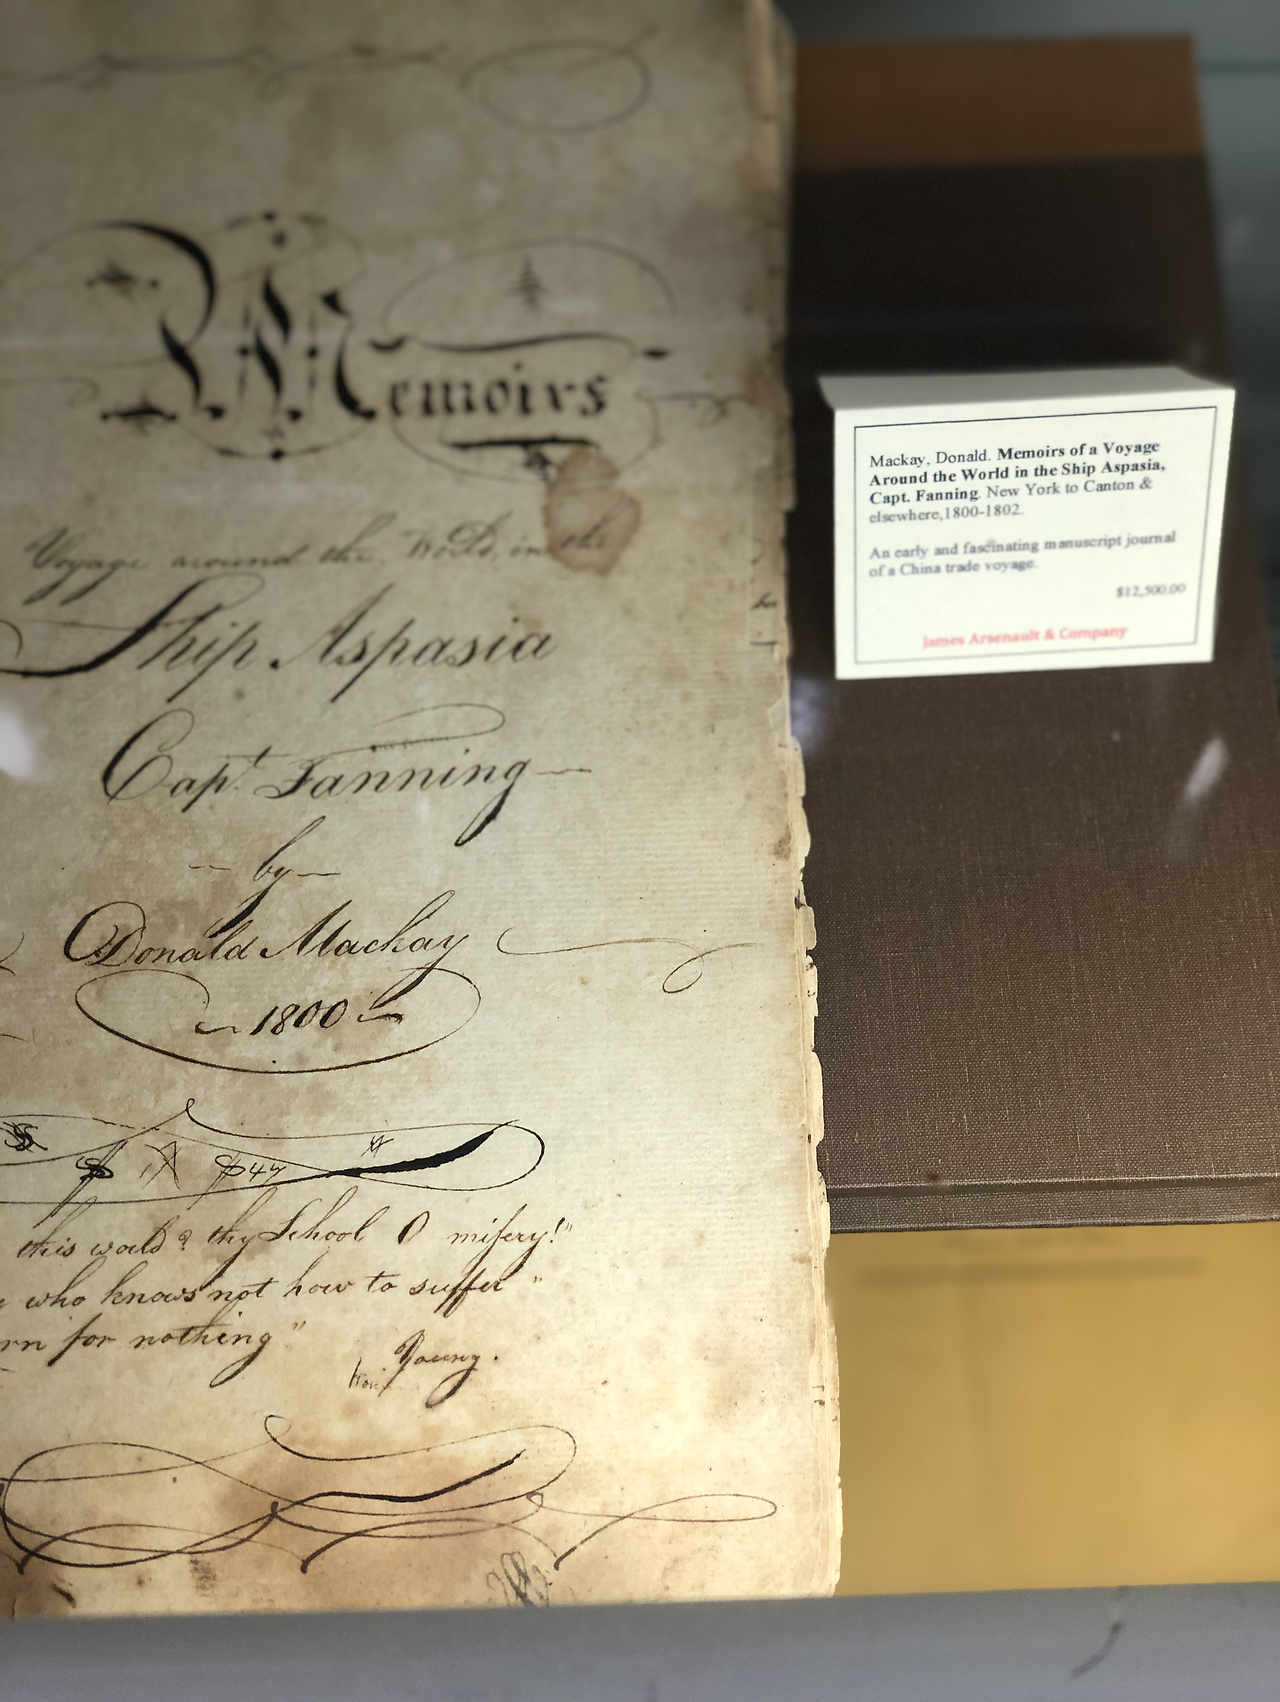 Memoirs
Voyage around the World, in the
Ship Aspasia
Capt. Fanning
by
Donald Mackay
1800
$ $47
this world & thy School O misery!"
who knows not how to suffer"
rn for nothing"
Young.
Mackay, Donald. Memoirs of a Voyage
Around the World in the Ship Aspasia,
Capt. Fanning. New York to Canton &
elsewhere,1800-1802.
An early and fascinating manuscript journal
of a China trade voyage.
$12,500.00
James Arsenault & Company